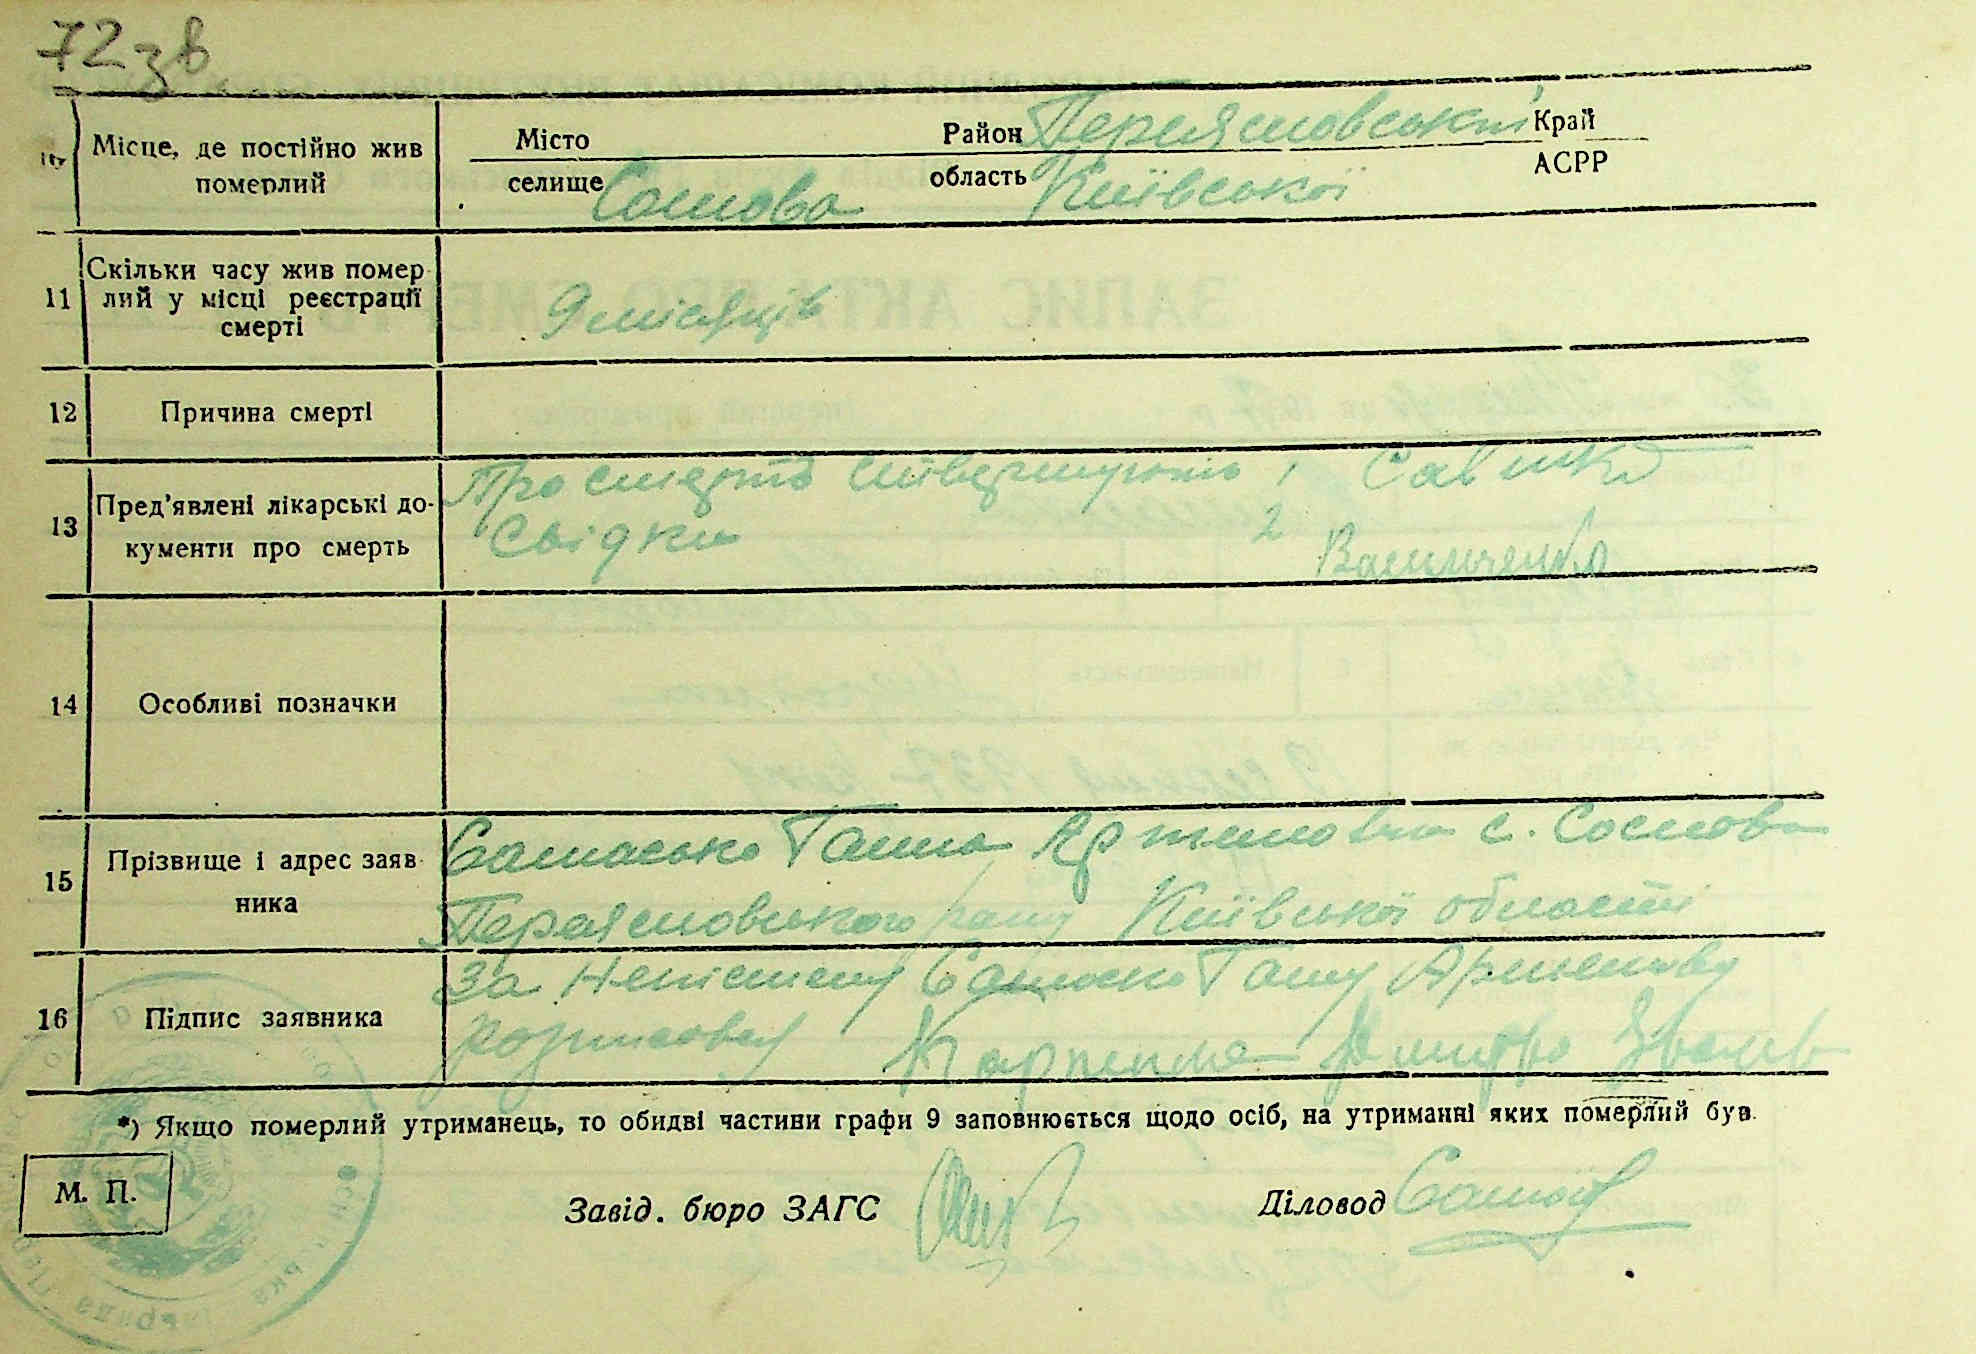 72зв
Місце, де постійно жив
померлий
Місто
Район Переясловський Край
селище Соснова
область Київської
АСРР
11
Скільки часу жив помер-
лий у місці реєстрації
смерті
9 місяців
12
Причина смерті
13
Пред'явлені лікарські до-
кументи про смерть
Про смерть ствержують 1 Савчик
Свідки 2 Васильченко
14
Особливі позначки
15
Прізвище і адрес заяв-
ника
Ганна Артемовна с. Соснова
Переясловського рану Київської області
16
Підпис заявника
За неписьмену Ганну Артемовну
розписовся Карпенко Дмитро
*) Якщо померлий утриманець, то обидві частини графи 9 заповнюється щодо осіб, на утриманні яких померлий був.
М. П.
Завід. бюро ЗАГС
Діловод